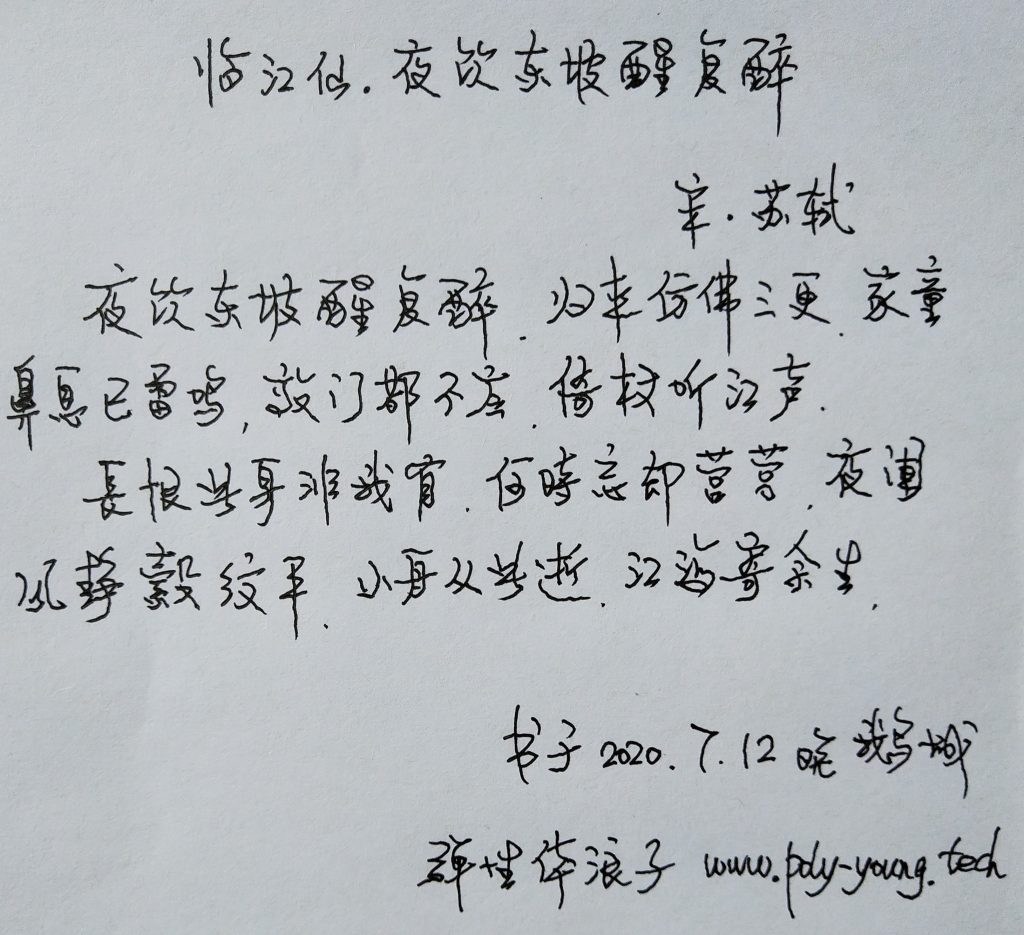 临江仙.夜饮东坡醒复醉
宋.苏轼
夜饮东坡醒复醉.归来仿佛三更.家童
鼻息已雷鸣,敲门都不应.倚杖听江声.
長恨此身非我有.何時忘却营营.夜阑
风静縠纹平.小舟从此逝.江海寄余生.
书于2020.7.12晚 鹅城
弹性体浪子 www.poly-young.tech